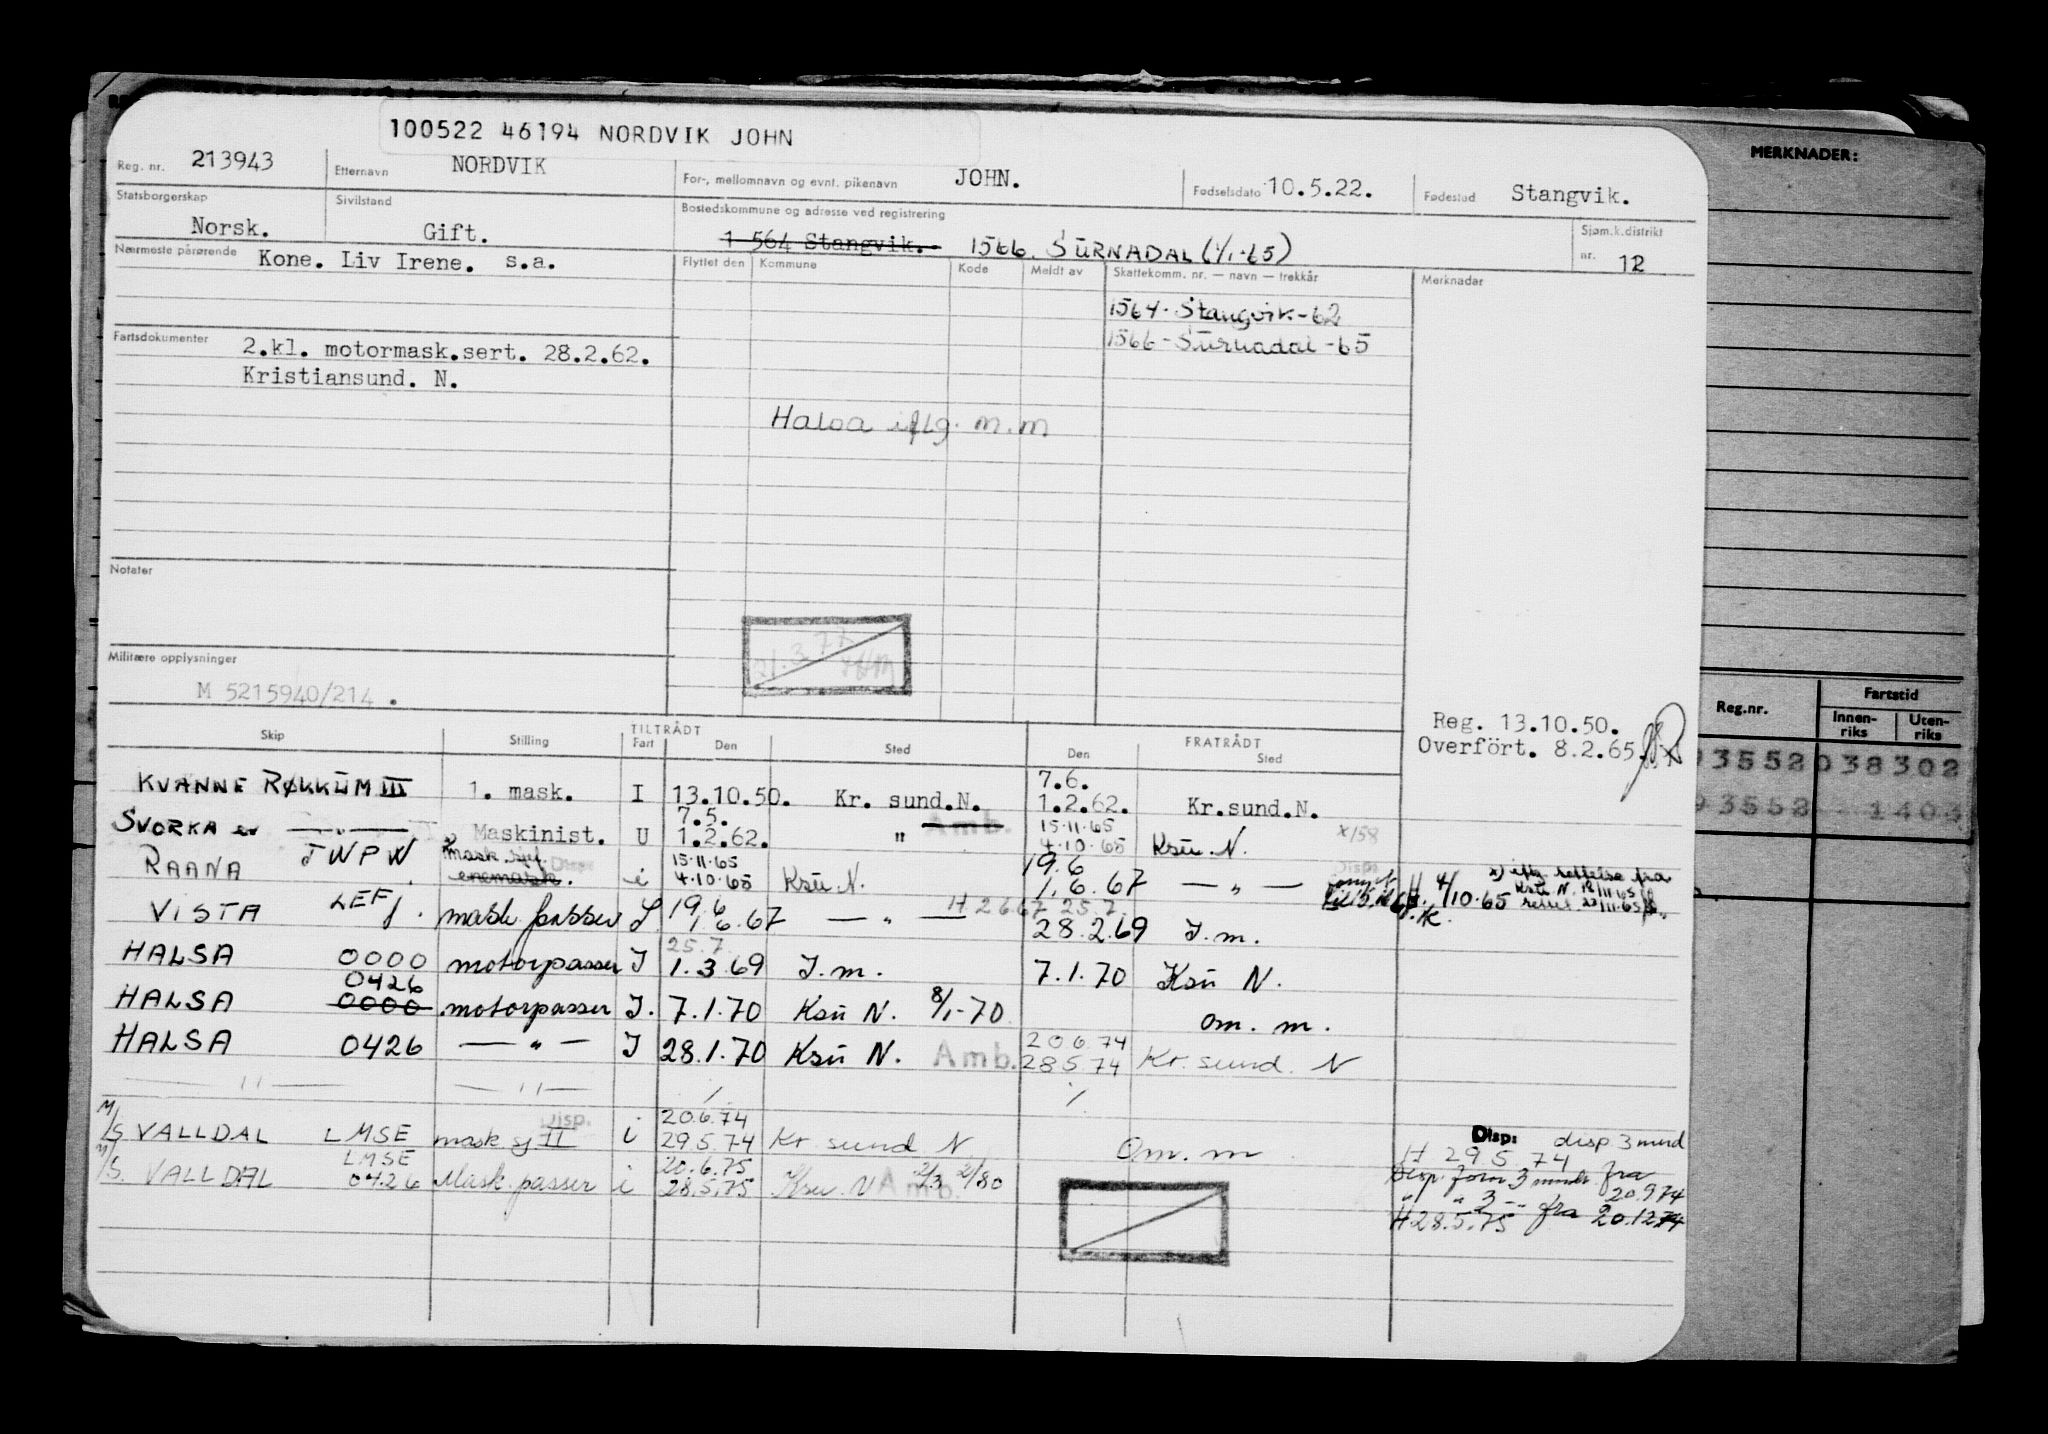 100522 46194 NORDVIK JOHN
MERKNADER:
Reg. nr. 213943 Etternavn NORDVIK For-, mellomnavn og evnt. pikenavn JOHN. Fødselsdato 10.5.22. Fødested Stangvik.
Statsborgerskap Norsk. Sivilstand Gift. Bostedskommune og adresse ved registrering 1 564 Stangvik. 1566. SURNADAL (1/1-65) Sjøm.k.distrikt nr. 12
Nærmeste pårørende Kone. Liv Irene. s.a.
Flyttet den Kommune Kode Meldt av Skattekomm. nr. — navn — trekkår Merknader
1564. Stangvik-62
1566-Surnadal-65
Fartsdokumenter 2.kl. motormask.sert. 28.2.62.
Kristiansund. N.
Halsa iflg. m.m
Notater
21.3.77
Militære opplysninger
M 5215940/214 .
Reg. 13.10.50.
Overført. 8.2.65.
Reg.nr. Fartstid
Innenriks Utenriks
93552 038302
93552 1403
Skip Stilling TILTRÅDT Fart Den Sted FRATRÅDT Den Sted
KVANNE RØKKUM III 1. mask. I 13.10.50. Kr. sund.N. 7.6. 1.2.62. Kr.sund.N.
SVORKA ex —"— Maskinist. U 7.5. 1.2.62. " Amb. 15.11.65 4.10.65 Ksu. N. x/158
RAANA JWPW mask.sjef. enemask. i 15.11.65 4.10.65 Ksu. N. 19.6 1.6.67 — " — H 4/10.65 x) iflg rettelse fra Ksu N. 18/11.65
VISTA LEFJ. mask passer 19.6 1.6.67 — " — H 2667 25.7. 28.2.69 J.m.
HALSA 0000 motorpasser J 25.7. 1.3.69 J.m. 7.1.70 Ksu N.
HALSA 0426 0000 motorpasser J. 7.1.70 Ksu N. 8/1-70 om. m.
HALSA 0426 — " — J 28.1.70 Ksu N. Amb. 20 6.74 28 5.74 Kr. sund. N
— " — — " —
M/S VALLDAL LMSE mask sj II Disp. i 20.6.74 29.5.74 Kr. sund N Om. m Disp: disp 3 mnd
H 29 5 74
M/S. VALLDAL LMSE 0426 Mask. passer i 20.6.75 28.5.75 Ksu. N Amb. 2/3 2/80 Disp. forn 3 mndr fra 20.9.74
" " 3 - " fra 20.12.74
H 28.5.75